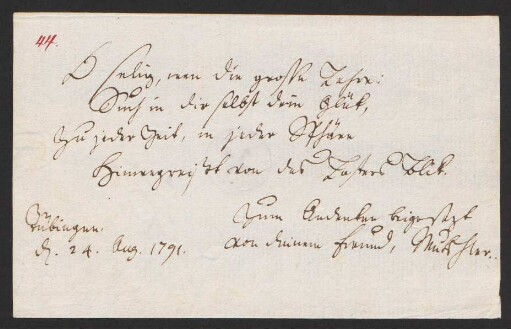 44.
O selig, wen die grosse Lehre:
Such in dir selbst dein Glük,
Zu jeder Zeit, in jeder Sphäre
von des Lasters Blik.
Tübingen.
d. 24. Aug. 1791.
Zum Andenken beigesezt
von deinem Freund,